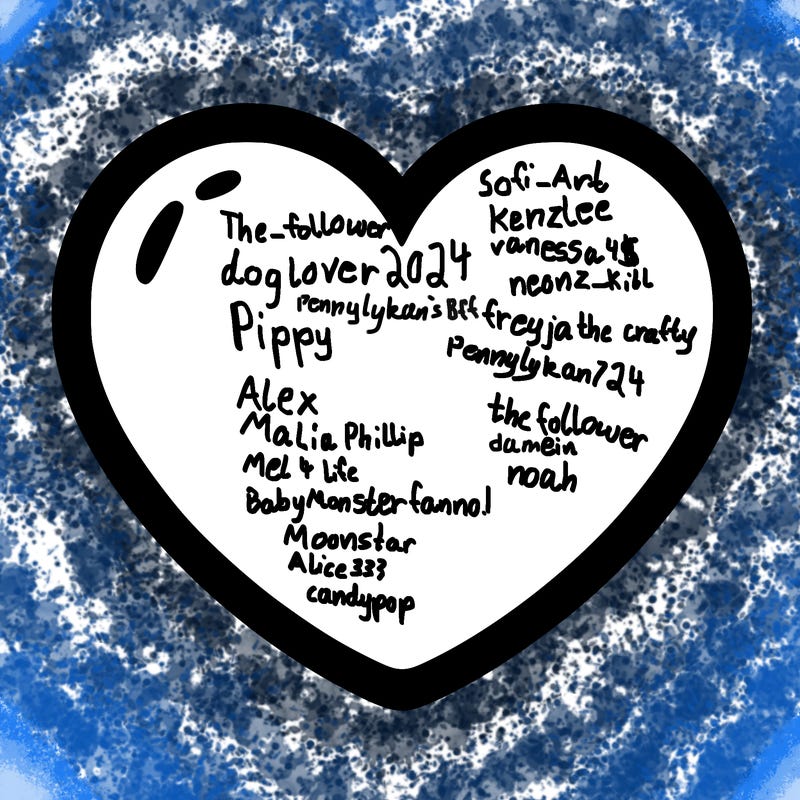 The_follower
doglover2024
Pennylykan's Bff
Pippy
Alex
Malia Phillip
Mel 4 life
BabyMonsterfanno.1
Moonstar
Alice333
candypop
Sofi_Art
Kenzlee
vanessa4$
neonz_kill
freyja the crafty
Pennylykan724
the follower
damein
noah